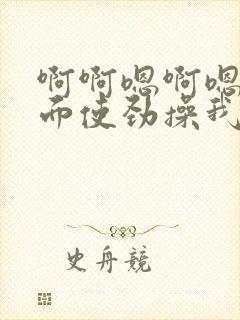 啊啊嗯啊嗯
而使劲操我
史舟竞